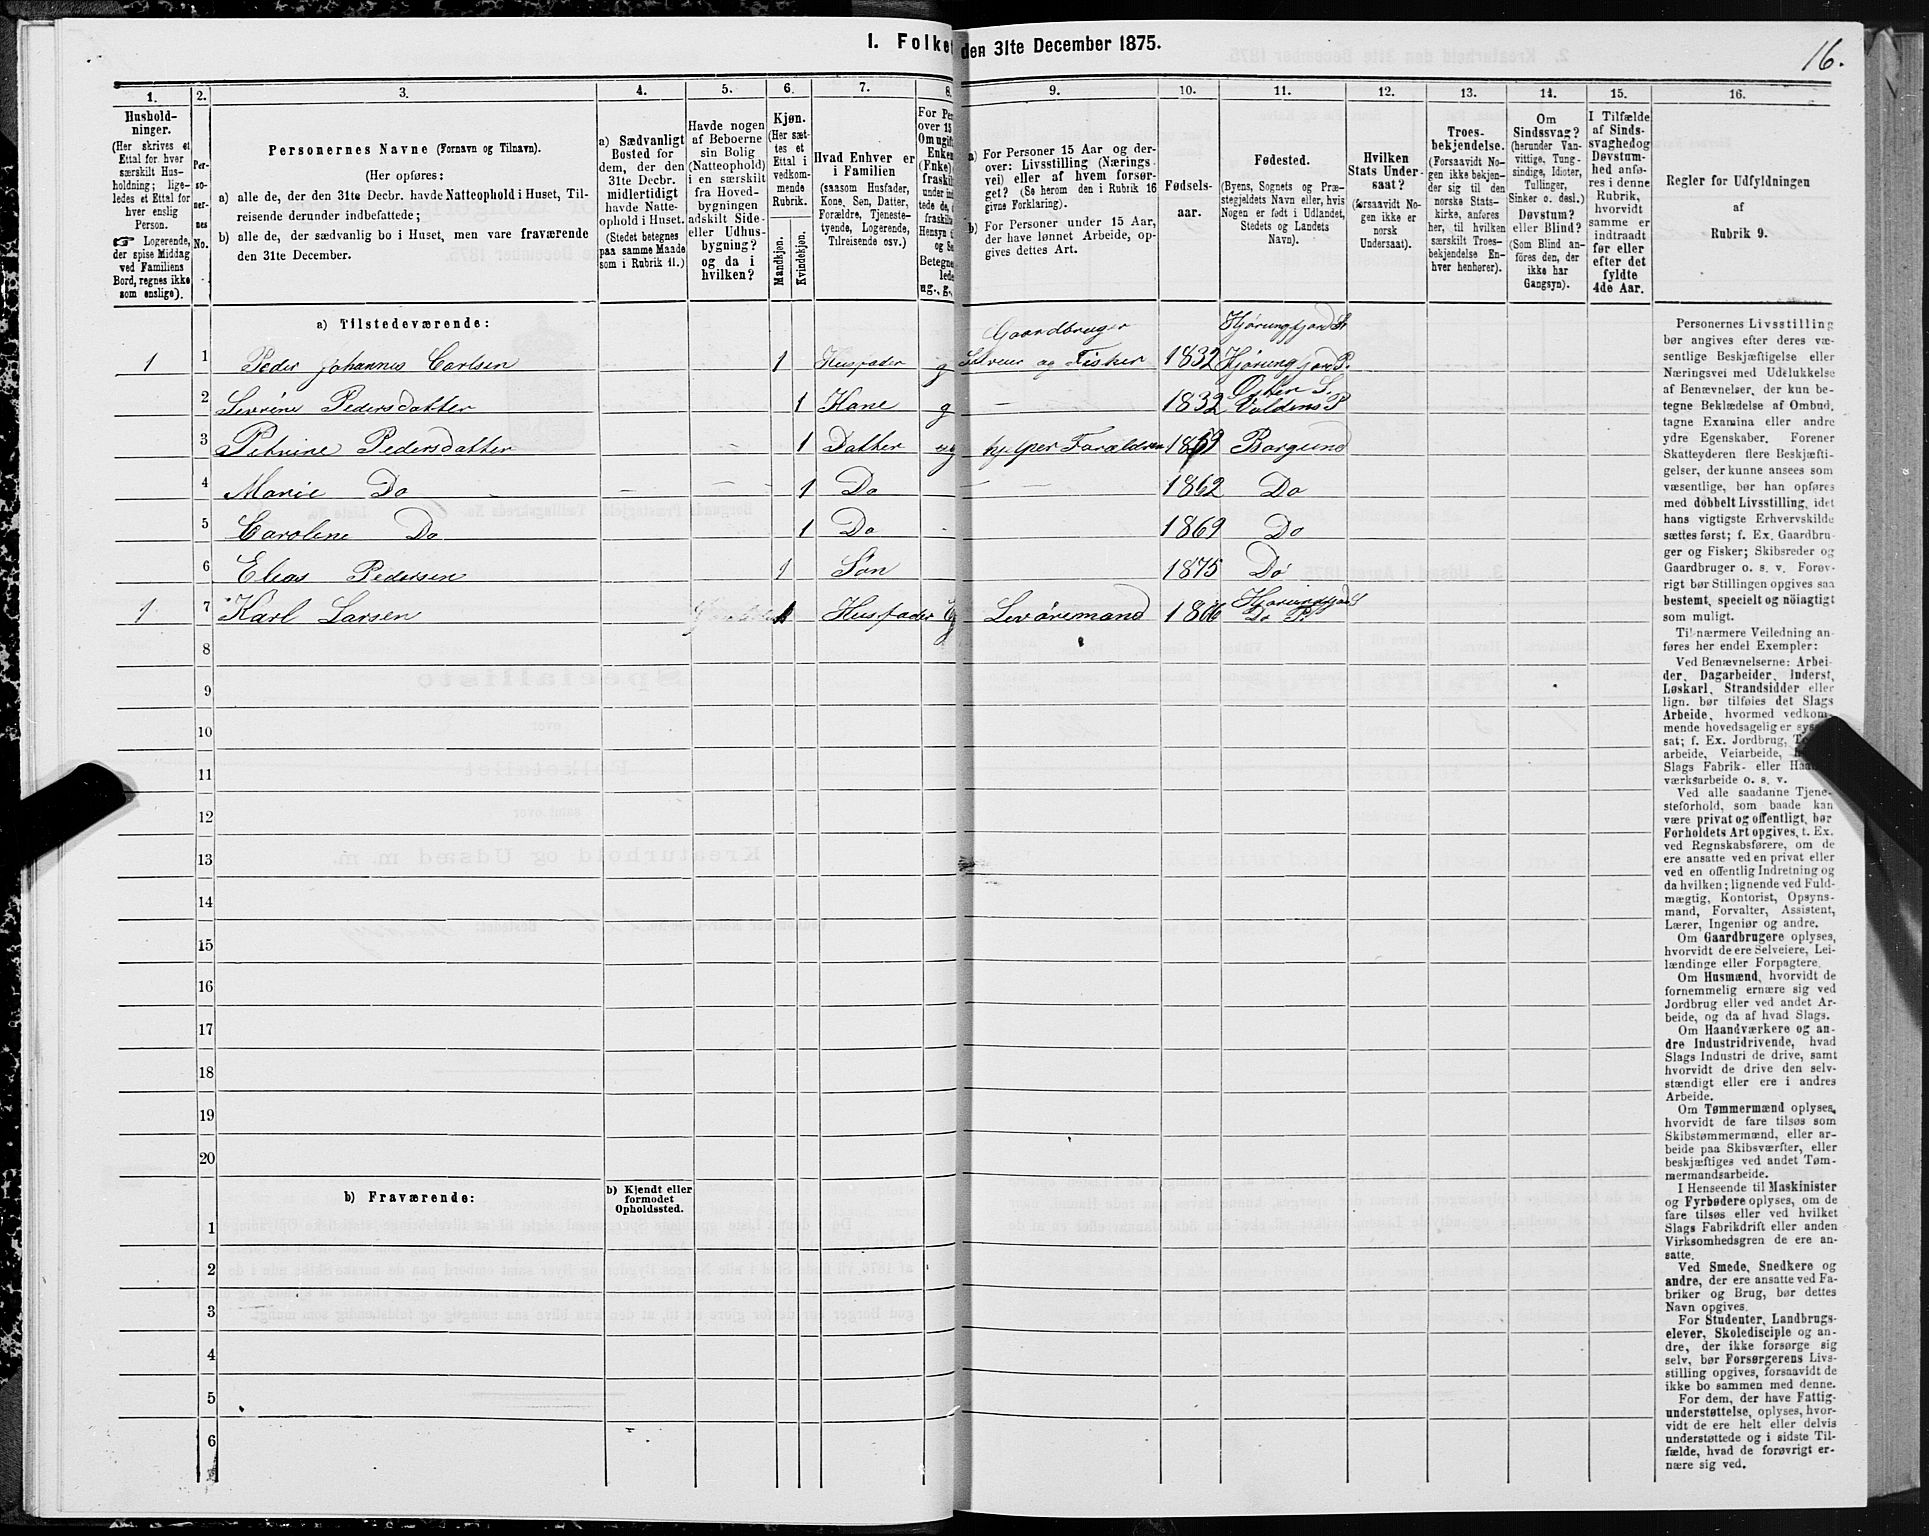 1. Folket den 31te December 1875.
16.
1. 2. 3. 4. 5. 6. 7. 8. 9. 10. 11. 12. 13. 14. 15. 16.
Hushold-
ninger.
(Her skrives et
Ettal for hver
særskilt Hus-
holdning; lige-
ledes et Ettal for
hver enslig
Person.
☞ Logerende,
der spise Middag
ved Familiens
Bord, regnes ikke
som enslige).
Per-
so-
ner-
nes
No.
Personernes Navne (Fornavn og Tilnavn).
(Her opføres:
a) alle de, der den 31te Decbr. havde Natteophold i Huset, Til-
reisende derunder indbefattede;
b) alle de, der sædvanlig bo i Huset, men vare fraværende
den 31te December.
a) Sædvanligt
Bosted for
dem, der den
31te Decbr.
midlertidigt
havde Natte-
ophold i Huset.
(Stedet betegnes
paa samme Maade
som i Rubrik 11.)
Havde nogen
af Beboerne
sin Bolig
(Natteophold)
i en særskilt
fra Hoved-
bygningen
adskilt Side-
eller Udhus-
bygning?
og da i
hvilken?
Kjøn.
(Her sæt-
tes et
Ettal i
vedkom-
mende
Rubrik.
Mandkjøn.
Kvindekjøn.
Hvad Enhver er
i Familien
(saasom Husfader,
Kone, Søn, Datter,
Forældre, Tjeneste-
tyende, Logerende,
Tilreisende osv.)
For Per
over 15
Om ugift
Enken
(Fnke),
fraskil
under ind
tede de,
fraskilt
Hensyn t
og Se
Betegne
lede
ug., g.,
a) For Personer 15 Aar og der-
over: Livsstilling (Nærings-
vei) eller af hvem forsør-
get? (Se herom den i Rubrik 16
givne Forklaring).
b) For Personer under 15 Aar,
der have lønnet Arbeide, op-
gives dettes Art.
Fødsels-
aar.
Fødested.
(Byens, Sognets og Præ-
stegjeldets Navn eller, hvis
Nogen er født i Udlandet,
Stedets og Landets
Navn).
Hvilken
Stats Under-
saat?
(forsaavidt No-
gen ikke er
norsk
Undersaat).
Troes-
bekjendelse.
(Forsaavidt No-
gen ikke bekjen-
der sig til den
norske Stats-
kirke, anføres
her, til hvilken
særskilt Troes-
bekjendelse En-
hver henhører).
Om
Sindssvag?
(herunder Van-
vittige, Tung-
sindige, Idioter,
Tullinger,
Sinker o. desl.)
Døvstum?
eller Blind?
(Som Blind an-
føres den, der
ikke har
Gangsyn).
I Tilfælde
af Sinds-
svaghed og
Døvstum-
hed anfø-
res i denne
Rubrik,
hvorvidt
samme er
indtraadt
før eller
efter det
fyldte
4de Aar.
Regler for Udfyldningen
af
Rubrik 9.
a) Tilstedeværende:
1 1 Peder Johannes Carlsen 1 Husfader g Gaardbruger Selveier og Fisker 1832 Hjørungfjord P.
2 Sevrine Pedersdatter 1 Kone g 1832 Voldens P
3 Petrine Pedersdatter 1 Datter ug hjelper Forældrene 1859 Borgund
4 Marie Do 1 Do 1862 Do
5 Carolene Do 1 Do 1869 Do
6 Elias Pedersen 1 Søn 1875 Do
1 7 Karl Larsen 1 Husfader Levøremand 1806 Do P.
8
9
10
11
12
13
14
15
16
17
18
19
20
b) Fraværende:
b) Kjendt eller
formodet
Opholdssted.
1
2
3
4
5
6
Personernes Livsstilling
bør angives efter deres væ-
sentlige Beskjæftigelse eller
Næringsvei med Udelukkelse
af Benævnelser, der kun be-
tegne Beklædelse af Ombud,
tagne Examina eller andre
ydre Egenskaber. Forener
Skatteyderen flere Beskjæfti-
gelser, der kunne ansees som
væsentlige, bør han opføres
med dobbelt Livsstilling, idet
hans vigtigste Erhvervskilde
sættes først; f. Ex. Gaardbru-
ger og Fisker; Skibsreder og
Gaardbruger o. s. v. Forøv-
rigt bør Stillingen opgives saa
bestemt, specielt og nöiagtigt
som muligt.
Til nærmere Veiledning an-
føres her endel Exempler:
Ved Benævnelserne: Arbei-
der, Dagarbeider, Inderst,
Løskarl, Strandsidder eller
lign. bør tilføies det Slags
Arbeide, hvormed vedkom-
mende hovedsagelig er syssel-
sat; f. Ex. Jordbrug,
arbeide, Veiarbeide,
Slags Fabrik- eller Haand-
værksarbeide o. s. v.
Ved alle saadanne Tjene-
steforhold, som baade kan
være privat og offentligt, bør
Forholdets Art opgives, t. Ex.
ved Regnskabsførere, om de
ere ansatte ved en privat eller
ved en offentlig Indretning og
da hvilken; lignende ved Fuld-
mægtig, Kontorist, Opsyns-
mand, Forvalter, Assistent,
Lærer, Ingeniør og andre.
Om Gaardbrugere oplyses,
hvorvidt de ere Selveiere, Lei-
lændinge eller Forpagtere.
Om Husmænd, hvorvidt de
fornemmelig ernære sig ved
Jordbrug eller ved andet Ar-
beide, og da af hvad Slags.
Om Haandværkere og an-
dre Industridrivende, hvad
Slags Industri de drive, samt
hvorvidt de drive den selv-
stændigt eller ere i andres
Arbeide.
Om Tømmermænd oplyses,
hvorvidt de fare tilsøs som
Skibstømmermænd, eller ar-
beide paa Skibsværfter, eller
beskjæftiges ved andet Tøm-
mermandsarbeide.
I Henseende til Maskinister
og Fyrbødere oplyses, om de
fare tilsøs eller ved hvilket
Slags Fabrikdrift eller anden
Virksomhedsgren de ere an-
satte.
Ved Smede, Snedkere og
andre, der ere ansatte ved Fa-
briker og Brug, bør dettes
Navn opgives.
For Studenter, Landbrugs-
elever, Skoledisciple og an-
dre, der ikke forsørge sig
selv, bør Forsørgerens Livs-
stilling opgives, forsaavidt de
ikke bo sammen med denne.
For dem, der have Fattig-
understøttelse, oplyses, hvor-
vidt de ere helt eller delvis
understøttede og i sidste Til-
fælde, hvad de forøvrigt er-
nære sig ved.